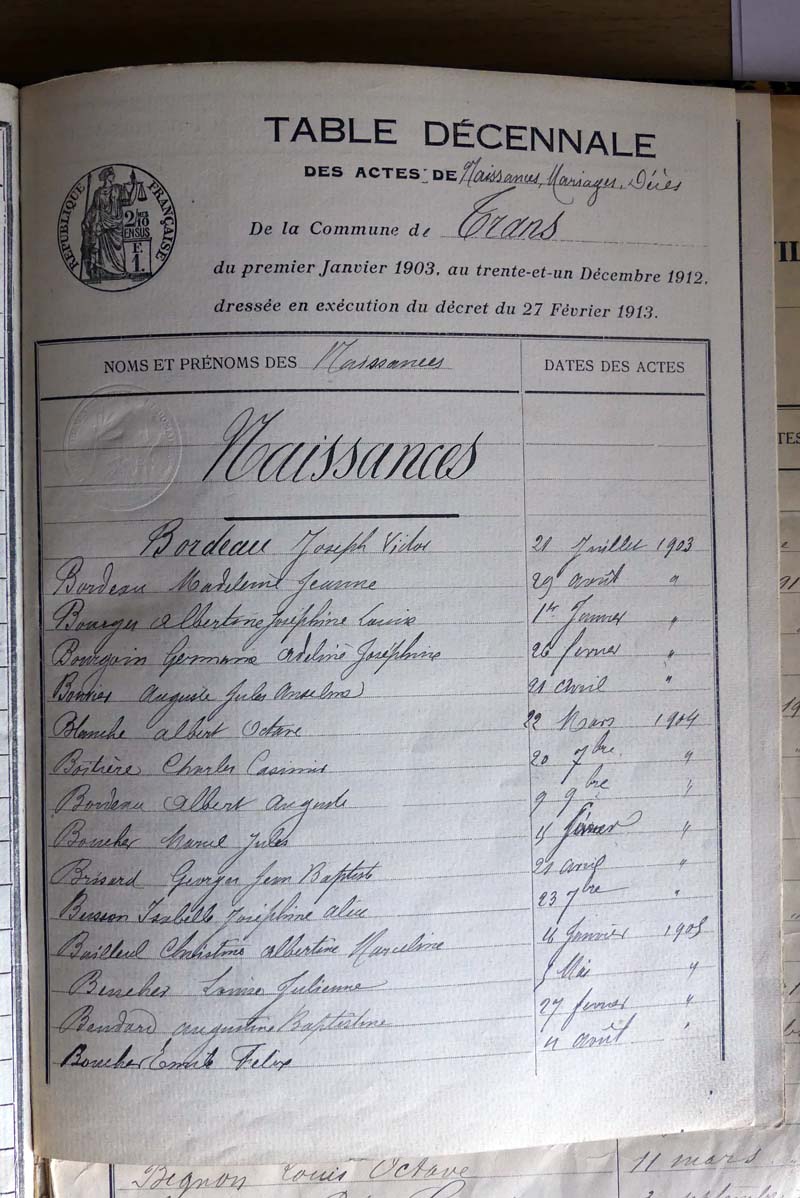 TABLE DÉCENNALE
DES ACTES DE Naissances, Mariages, Décès
RÉPUBLIQUE FRANÇAISE
2/10 EN SUS
F. 1.
De la Commune de Trans
du premier Janvier 1903, au trente-et-un Décembre 1912,
dressée en exécution du décret du 27 Février 1913.
NOMS ET PRÉNOMS DES Naissances DATES DES ACTES
Naissances
Bordeau Joseph Victor 21 Juillet 1903
Bordeau Madeleine Jeanne 29 août "
Bourges Albertine Joséphine Louise 1er Janvier "
Bourgoin Germaine Adeline Joséphine 26 février "
Auguste Jules Anselme 21 Avril "
Blanche Albert Octave 22 Mars 1904
Boitière Charles Casimir 20 7bre "
Bordeau Albert Auguste 9 9bre "
Boucher Marcel Jules février "
Brisard Georges Jean Baptiste 21 avril "
Busson Isabelle Joséphine 23 7bre "
Bailleul Christine Albertine Marceline Janvier 1905
Louise Julienne Mai "
Augustine Baptistine 27 février "
Boucher Emile Felix août "
Bignon Louis Octave 11 mars